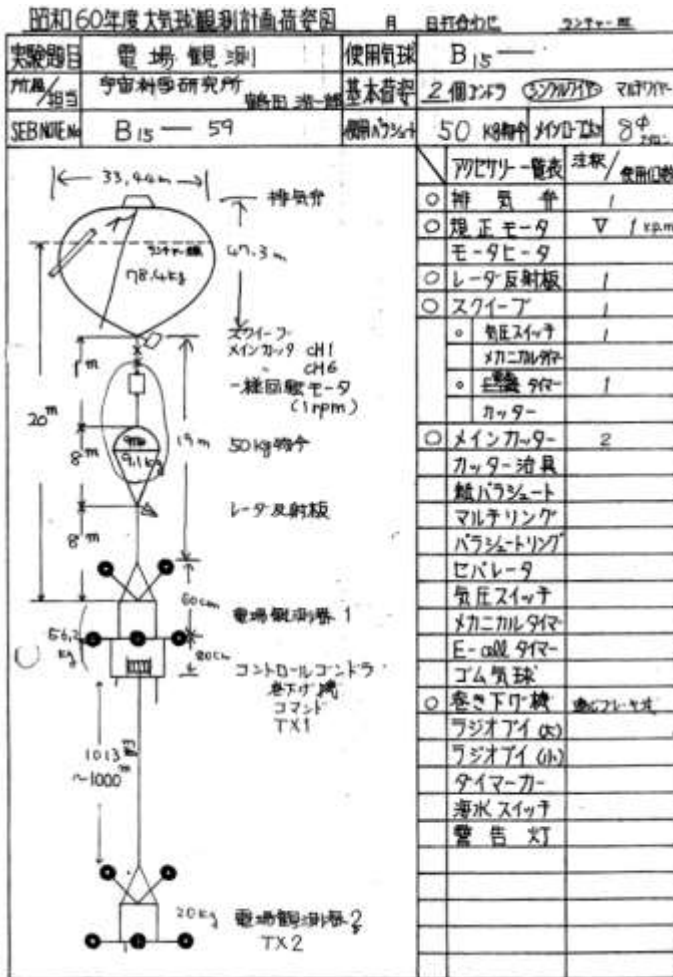 昭和60年度大気球観測計画荷姿図 月 日打合わせ
実験題目 電場観測 使用気球 B15―
所属/担当 宇宙科学研究所 基本荷姿 2個ゴンドラ シングルワイヤ マルチワイヤー
SEBNOTE№ B15 ― 59 使用パラシュート 50 kg物傘 メインロープ 8φ
アクセサリー一覧表 注釈/使用個数
○ 排気弁 1
○ 規正モータ ▽ 1 r.p.m
モータヒータ
○ レーダ反射板 1
○ スクイーブ 1
○ 気圧スイッチ 1
メカニカルタイマー
○ タイマー 1
カッター
○ メインカッター 2
カッター治具
紙パラシュート
マルチリング
パラシュートリング
セパレータ
気圧スイッチ
メカニカルタイマ
E-callタイマー
ゴム気球
○ 巻き下げ機
ラジオブイ(大)
ラジオブイ(小)
ダイマーカー
海水スイッチ
警告灯
33.44m
排気弁
47.3m
78.4kg
スクイーブ
メインカッタ CH1
〃 CH6
1m
(1rpm)
20m
19m
50kg物傘
9.1kg
8m
レーダ反射板
8m
60cm
電場観測器1
56.2kg
80cm
コントロールゴンドラ
巻下げ機
コマンド
TX1
1013m
~1000
20kg
電場観測器2
TX2